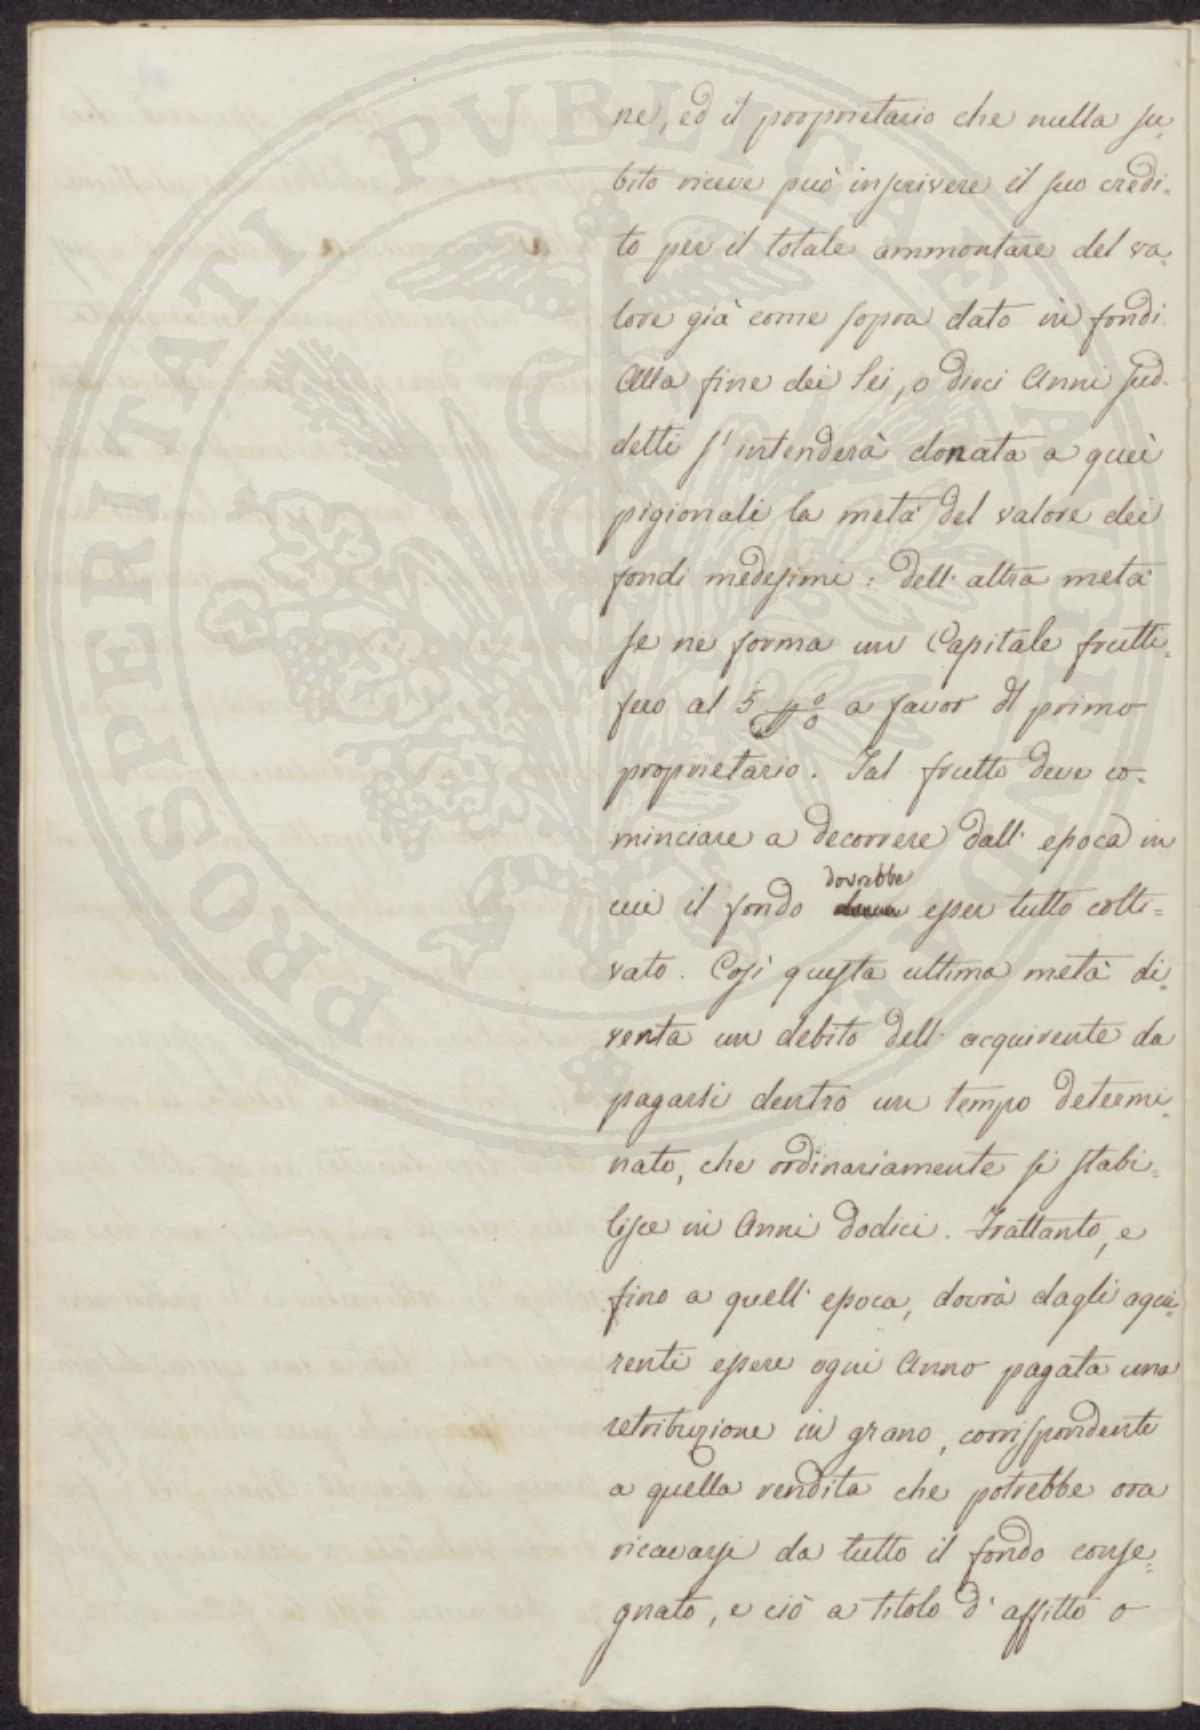 PROSPERITATI PVBLICAE AVGENDAE
ne, ed il proprietario che nulla su=
bito riceve può inscrivere il suo credi=
to per il totale ammontare del va=
lore già come sopra dato in fondi.
Alla fine dei sei, o dieci Anni sud=
detti s'intenderà donata a quei
pigionali la metà del valore dei
fondi medesimi: dell'altra metà
se ne forma un Capitale frutti=
fero al 5 p% a favor del primo
proprietario. Tal frutto deve co=
minciare a decorrere dall'epoca in
dovrebbe
cui il fondo esser tutto colti=
vato. Così questa ultima metà di=
venta un debito dell'acquirente da
pagarsi dentro un tempo determi=
nato, che ordinariamente si stabi=
lisce in Anni dodici. Frattanto, e
fino a quell'epoca, dovrà dagli aqui=
renti essere ogni Anno pagata una
retribuzione in grano, corrispondente
a quella rendita che potrebbe ora
ricavarsi da tutto il fondo conse=
gnato, e ciò a titolo d'affitto o